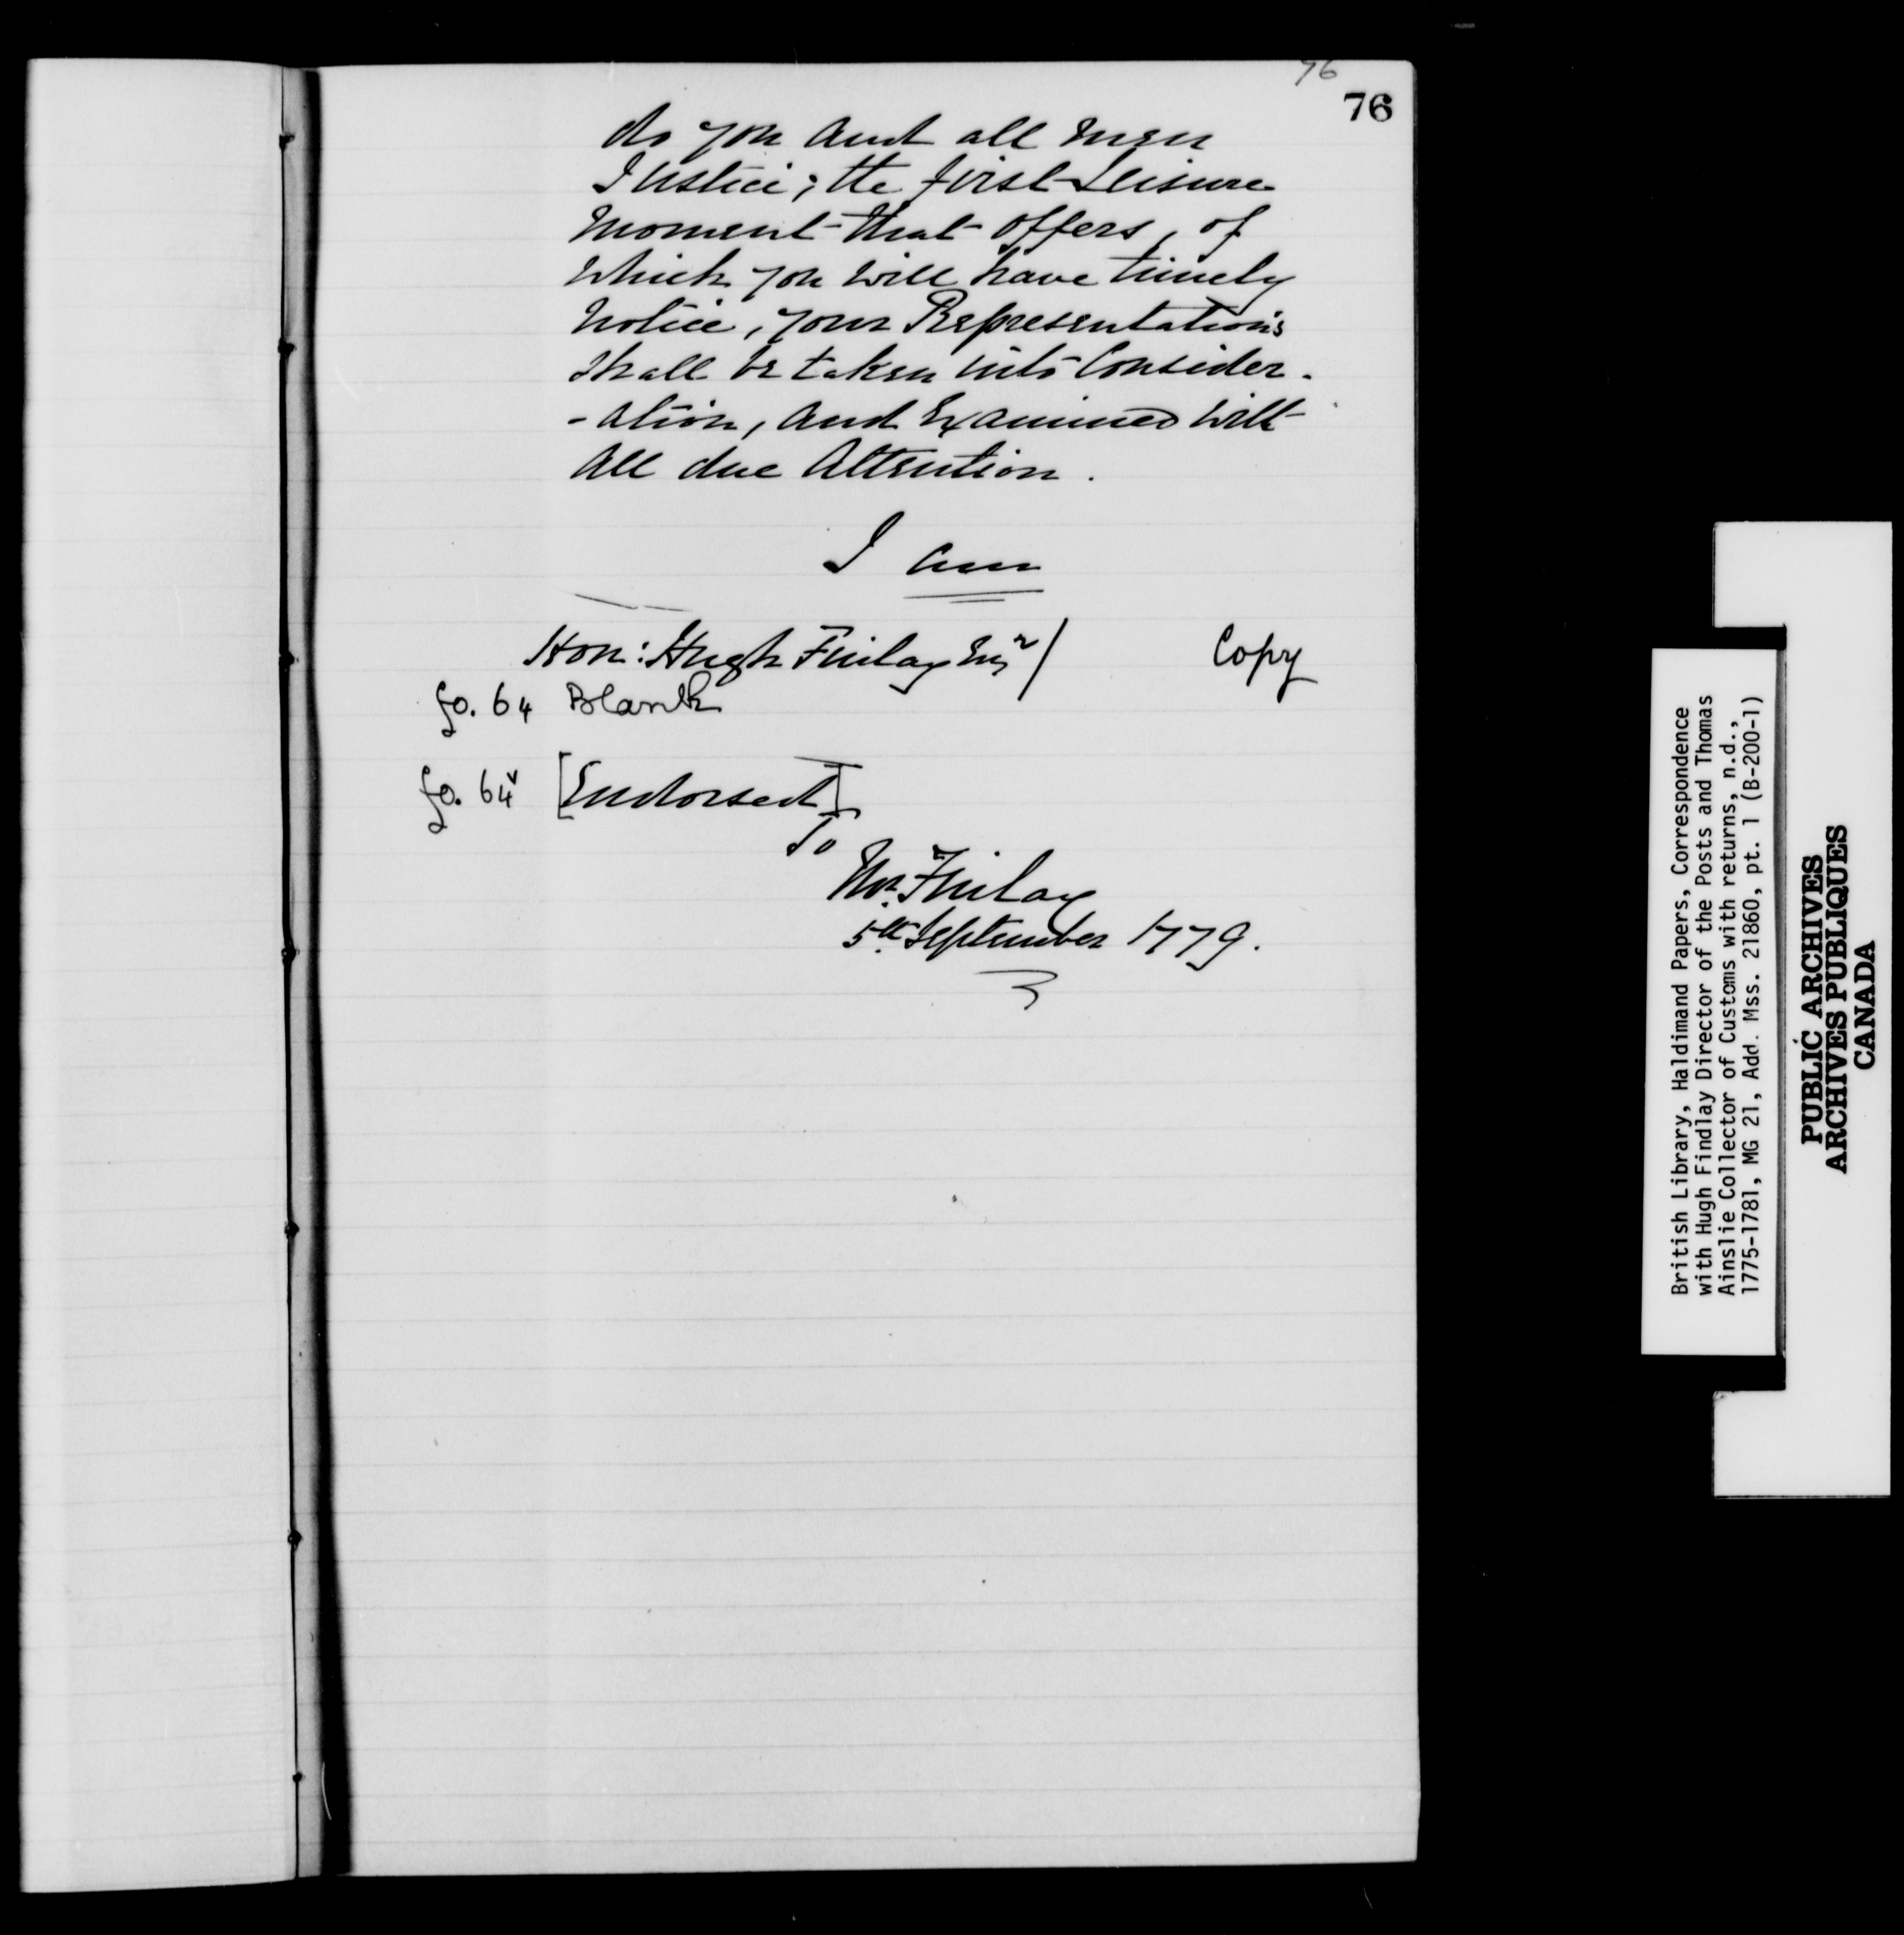 76
76
do you and all men
Justice; the first Leisure
Moment that offers, of
which you will have timely
Notice, your Representations
shall be taken into Consider-
-ation, and Examined with
all due Attention.
I am
Hon: Hugh Finlay Esqr/ Copy
fo. 64 Blank
fo. 64v [Endorsed]
To
Mr. Finlay
5th September 1779.
British Library, Haldimand Papers, Correspondence
with Hugh Findlay Director of the Posts and Thomas
Ainslie Collector of Customs with returns, n.d.,
1775-1781, MG 21, Add. Mss. 21860, pt. 1 (B-200-1)
PUBLIC ARCHIVES
ARCHIVES PUBLIQUES
CANADA